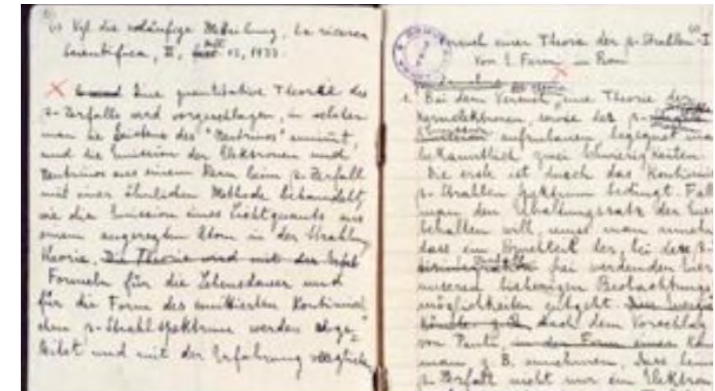 (1) Vgl. die vorläufige Mitteilung, La ricerca
Scientifica, II, 12, 1933.
Eine quantitative Theorie des
β-Zerfalls wird vorgeschlagen, in welcher
man die Existenz des "Neutrinos" annimmt,
und die Emission der Elektronen und
Neutrinos aus einem Kern beim β-Zerfall
mit einer ähnlichen Methode behandelt,
wie die Emission eines Lichtquants aus
einem angeregten Atom in der Strahlung
theorie. Die Theorie wird mit der
Formeln für die Lebensdauer und
für die Form des emittierten Kontinuier
chen β-Strahlspektrums werden abge-
leitet und mit der Erfahrung verglichen
Versuch einer Theorie der β-Strahlen I
Von E. Fermi in Rom
1. Bei dem Versuch, eine Theorie der
Kernelektronen, sowie der β-
Emission aufzubauen begegnet man
bekanntlich zwei Schwierigkeiten.
Die erste ist durch das Kontinuier
β-Strahlen Spektrum bedingt. Fall
man den Erhaltungssatz der Ener
behalten will, muss man anneh
dass ein Bruchteil der, bei dem β-
frei werdenden Ener
unseren bisherigen Beobachtungs
möglichkeiten entgeht.
nach dem Vorschlag
von Pauli, in der Form eines
man z. B. annehmen, dass beim
β-Zerfall nicht nur ein Elektron